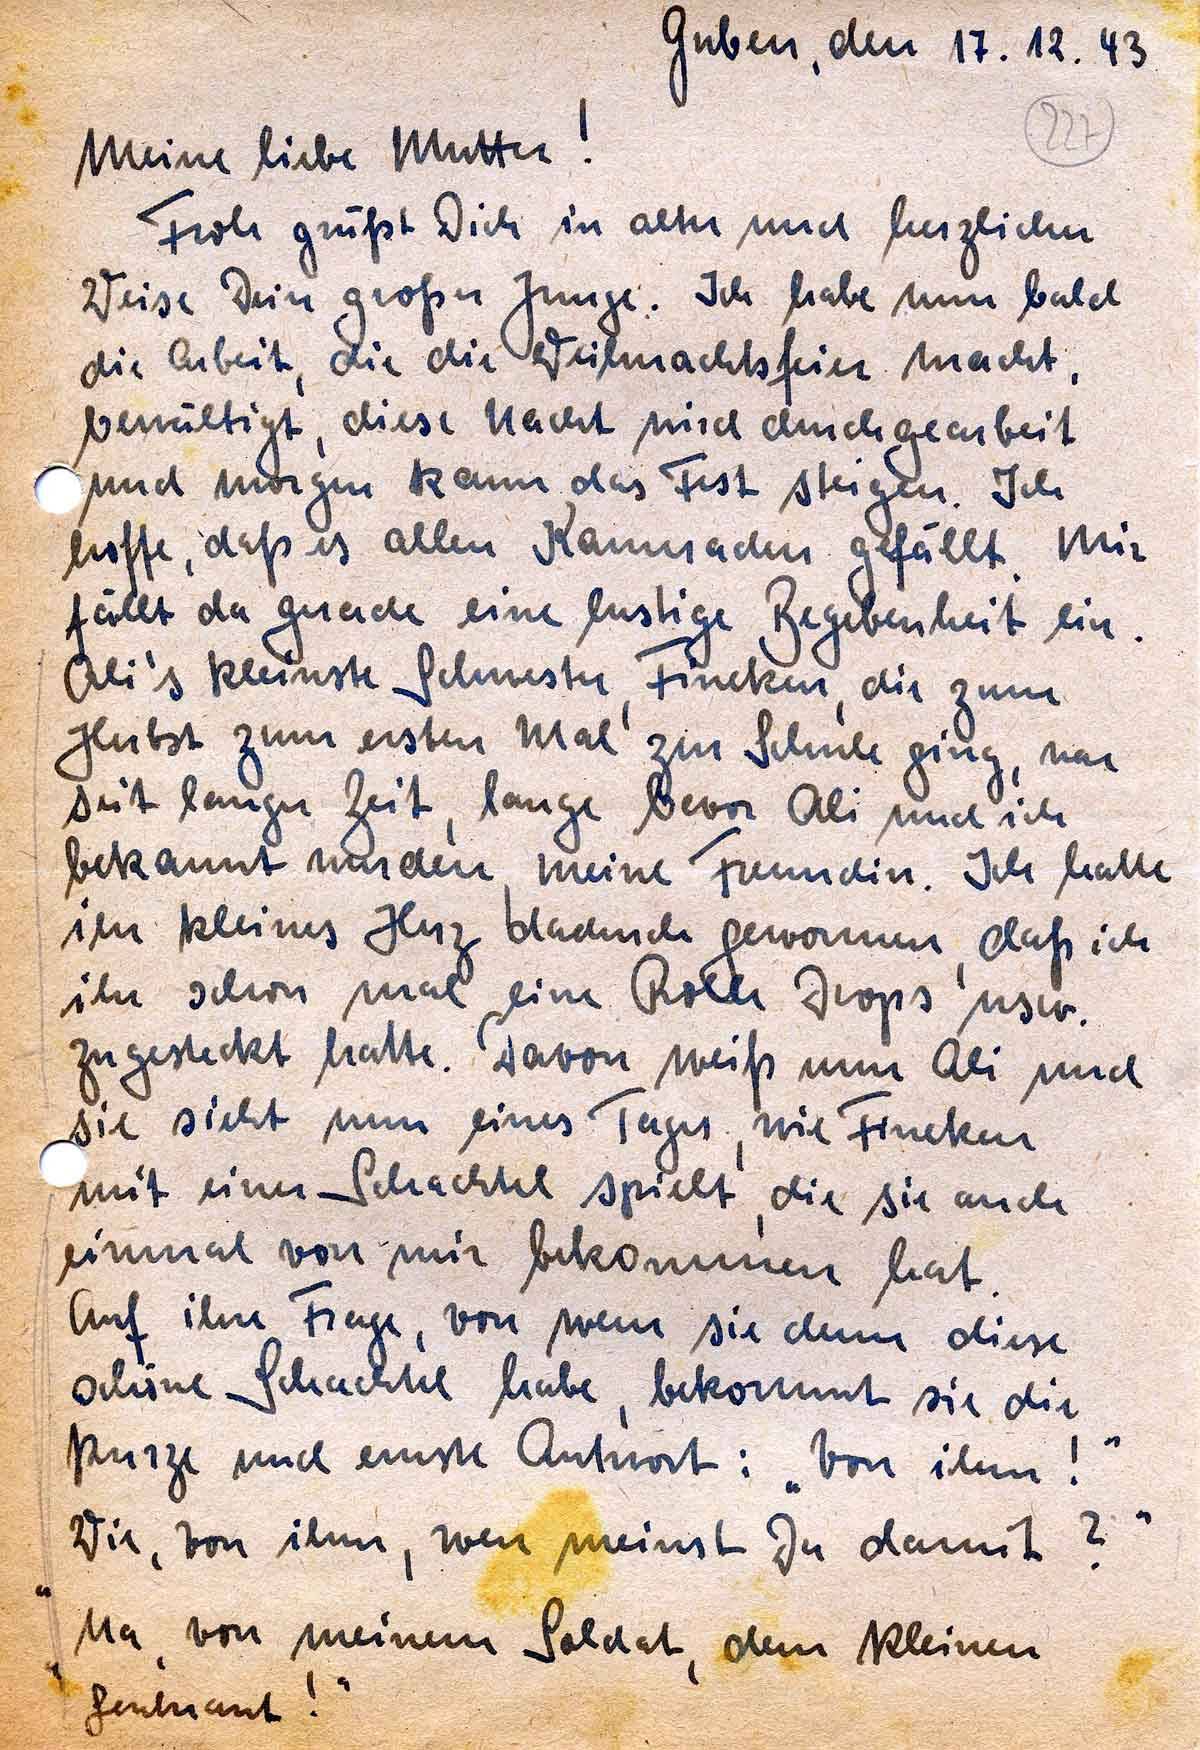 Guben, den 17. 12. 43
227
Meine liebe Mutter!
Froh grüßt Dich in alter und herzlicher
Weise Dein großer Junge. Ich habe nun bald
die Arbeit, die die Weihnachtsfeier macht,
bewältigt, diese Nacht wird durchgearbeit
und morgen kann das Fest steigen. Ich
hoffe, daß es allen Kameraden gefällt. Mir
fällt da gerade eine lustige Begebenheit ein.
Ali's kleinste Schwester, Fineken, die zum
Herbst zum ersten Mal zur Schule ging, war
seit langer Zeit, lange bevor Ali und ich
bekannt wurden, meine Freundin. Ich hatte
ihr kleines Herz dadurch gewonnen, daß ich
ihr schon mal eine Rolle Drops usw.
zugesteckt hatte. Davon weiß nun Ali und
sie sieht nun eines Tages, wie Fineken
mit einer Schachtel spielt, die sie auch
einmal von mir bekommen hat.
Auf ihre Frage, von wem sie denn diese
schöne Schachtel habe, bekommt sie die
kurze und ernste Antwort: „Von ihm!"
„Wie, von ihm, wen meinst Du damit?"
„Na, von meinem Soldat, dem kleinen
Leutnant!"